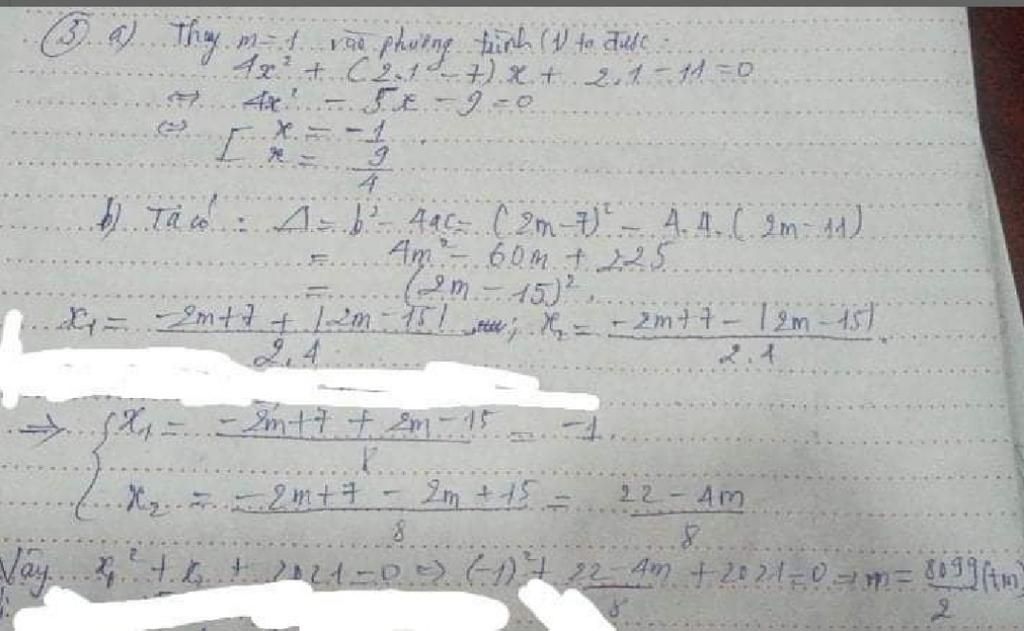 ③ a) Thay m = 1 vào phương trình (1) ta được :
4x² + (2.1 - 7)x + 2.1 - 11 = 0
⇔ 4x² - 5x - 9 = 0
⇔ [ x = -1
x = 9/4
b) Ta có : Δ = b² - 4ac = (2m - 7)² - 4.4.(2m - 11)
= 4m² - 60m + 225
= (2m - 15)².
x₁ = (-2m + 7 + |2m - 15|)/2.4 ; x₂ = (-2m + 7 - |2m - 15|)/2.4.
⇒ { x₁ = (-2m + 7 + 2m - 15)/8 = -1.
x₂ = (-2m + 7 - 2m + 15)/8 = (22 - 4m)/8
Vậy x₁² + x₂ + 2021 = 0 ⇔ (-1)² + (22 - 4m)/8 + 2021 = 0 ⇒ m = 8099/2 (tm)